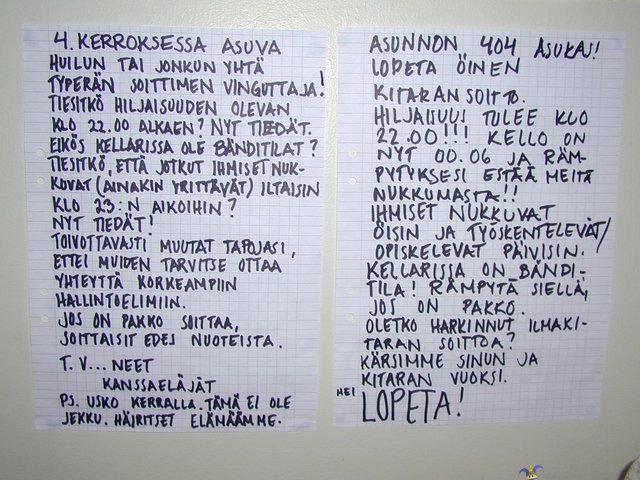 4. KERROKSESSA ASUVA
HUILUN TAI JONKUN YHTÄ
TYPERÄN SOITTIMEN VINGUTTAJA!
TIESITKÖ HILJAISUUDEN OLEVAN
KLO 22.00 ALKAEN? NYT TIEDÄT.
EIKÖS KELLARISSA OLE BÄNDITILAT?
TIESITKÖ, ETTÄ JOTKUT IHMISET NUK-
KUVAT (AINAKIN YRITTÄVÄT) ILTAISIN
KLO 23:N AIKOIHIN?
NYT TIEDÄT!
TOIVOTTAVASTI MUUTAT TAPOJASI,
ETTEI MUIDEN TARVITSE OTTAA
YHTEYTTÄ KORKEAMPIIN
HALLINTOELIMIIN.
JOS ON PAKKO SOITTAA,
SOITTAISIT EDES NUOTEISTA.
T. V... NEET
KANSSAELÄJÄT
PS. USKO KERRALLA. TÄMÄ EI OLE
JEKKU. HÄIRITSET ELÄMÄÄMME.
ASUNNON 404 ASUKAS!
LOPETA ÖINEN
KITARANSOITTO.
HILJAISUUS TULEE KLO
22.00!!! KELLO ON
NYT 00.06 JA RÄM-
PYTYKSESI ESTÄÄ MEITÄ
NUKKUMASTA!!
IHMISET NUKKUVAT
ÖISIN JA TYÖSKENTELEVÄT/
OPISKELEVAT PÄIVISIN.
KELLARISSA ON BÄNDI-
TILA! RÄMPYTÄ SIELLÄ,
JOS ON PAKKO.
OLETKO HARKINNUT ILMAKI-
TARAN SOITTOA?
KÄRSIMME SINUN JA
KITARAN VUOKSI.
HEI LOPETA!